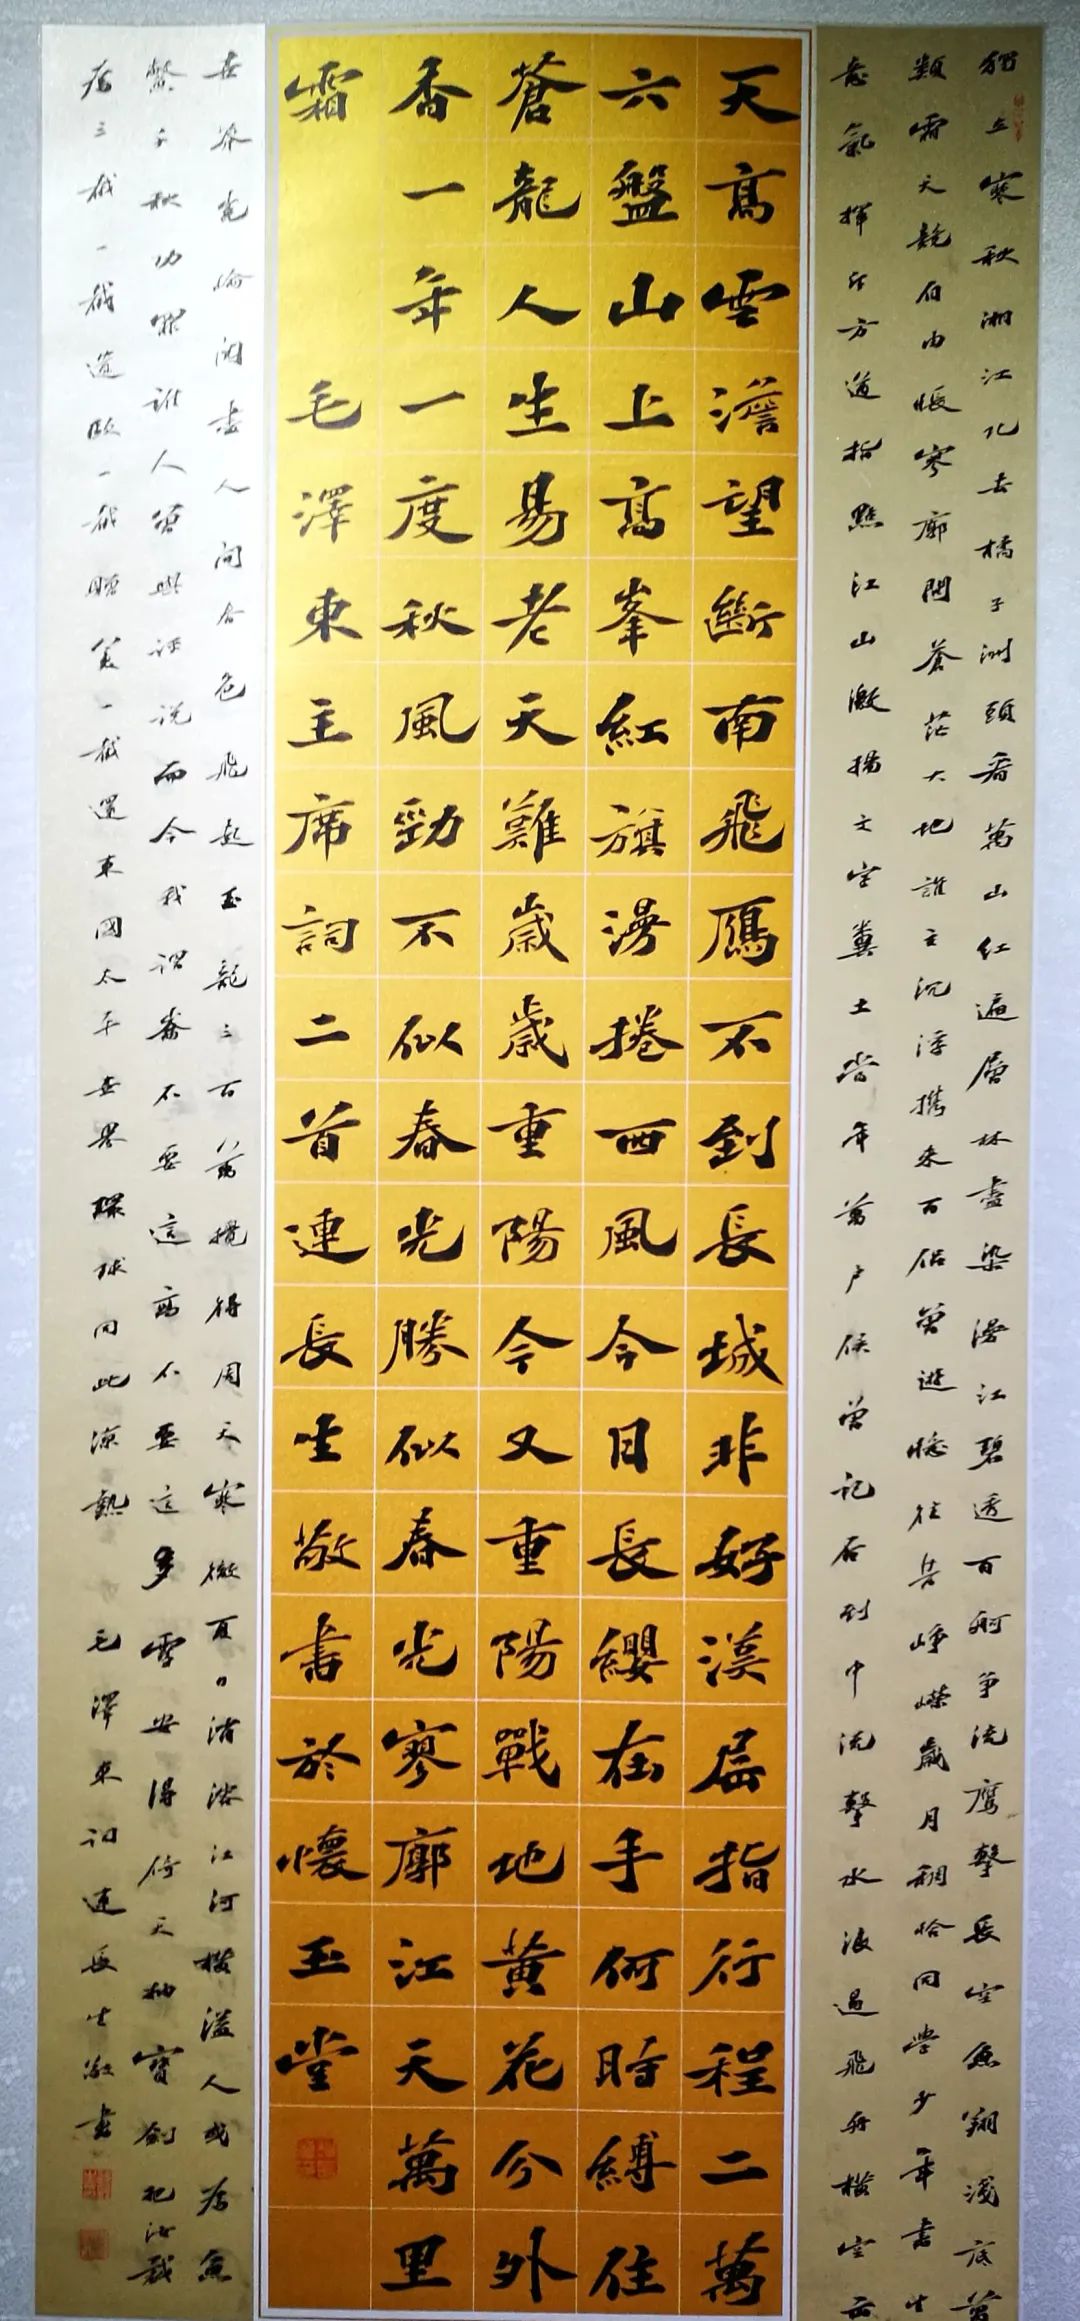 獨立寒秋湘江北去橘子洲頭看萬山紅遍層林盡染漫江碧透百舸爭流鷹擊長空魚翔淺底萬
類霜天競自由悵寥廓問蒼茫大地誰主沉浮攜來百侶曾遊憶往昔崢嶸歲月稠恰同學少年書生
意氣揮斥方遒指點江山激揚文字糞土當年萬戶侯曾記否到中流擊水浪遏飛舟橫空出
天高雲澹望斷南飛鴈不到長城非好漢屈指行程二萬
六盤山上高峯紅旗漫捲西風今日長纓在手何時縛住
蒼龍人生易老天難歲歲重陽今又重陽戰地黃花分外
香一年一度秋風勁不似春光勝似春光寥廓江天萬里
霜 毛澤東主席詞二首連長生敬書於懷玉堂
世莽崑崙閱盡人間春色飛起玉龍三百萬攪得周天寒徹夏日消溶江河橫溢人或為魚
鱉千秋功罪誰人曾與評說而今我謂崙不要這高不要這多雪安得倚天抽寶劍把汝裁
為三截一截遺歐一截贈美一截還東國太平世界環球同此涼熱 毛澤東詞連長生敬書